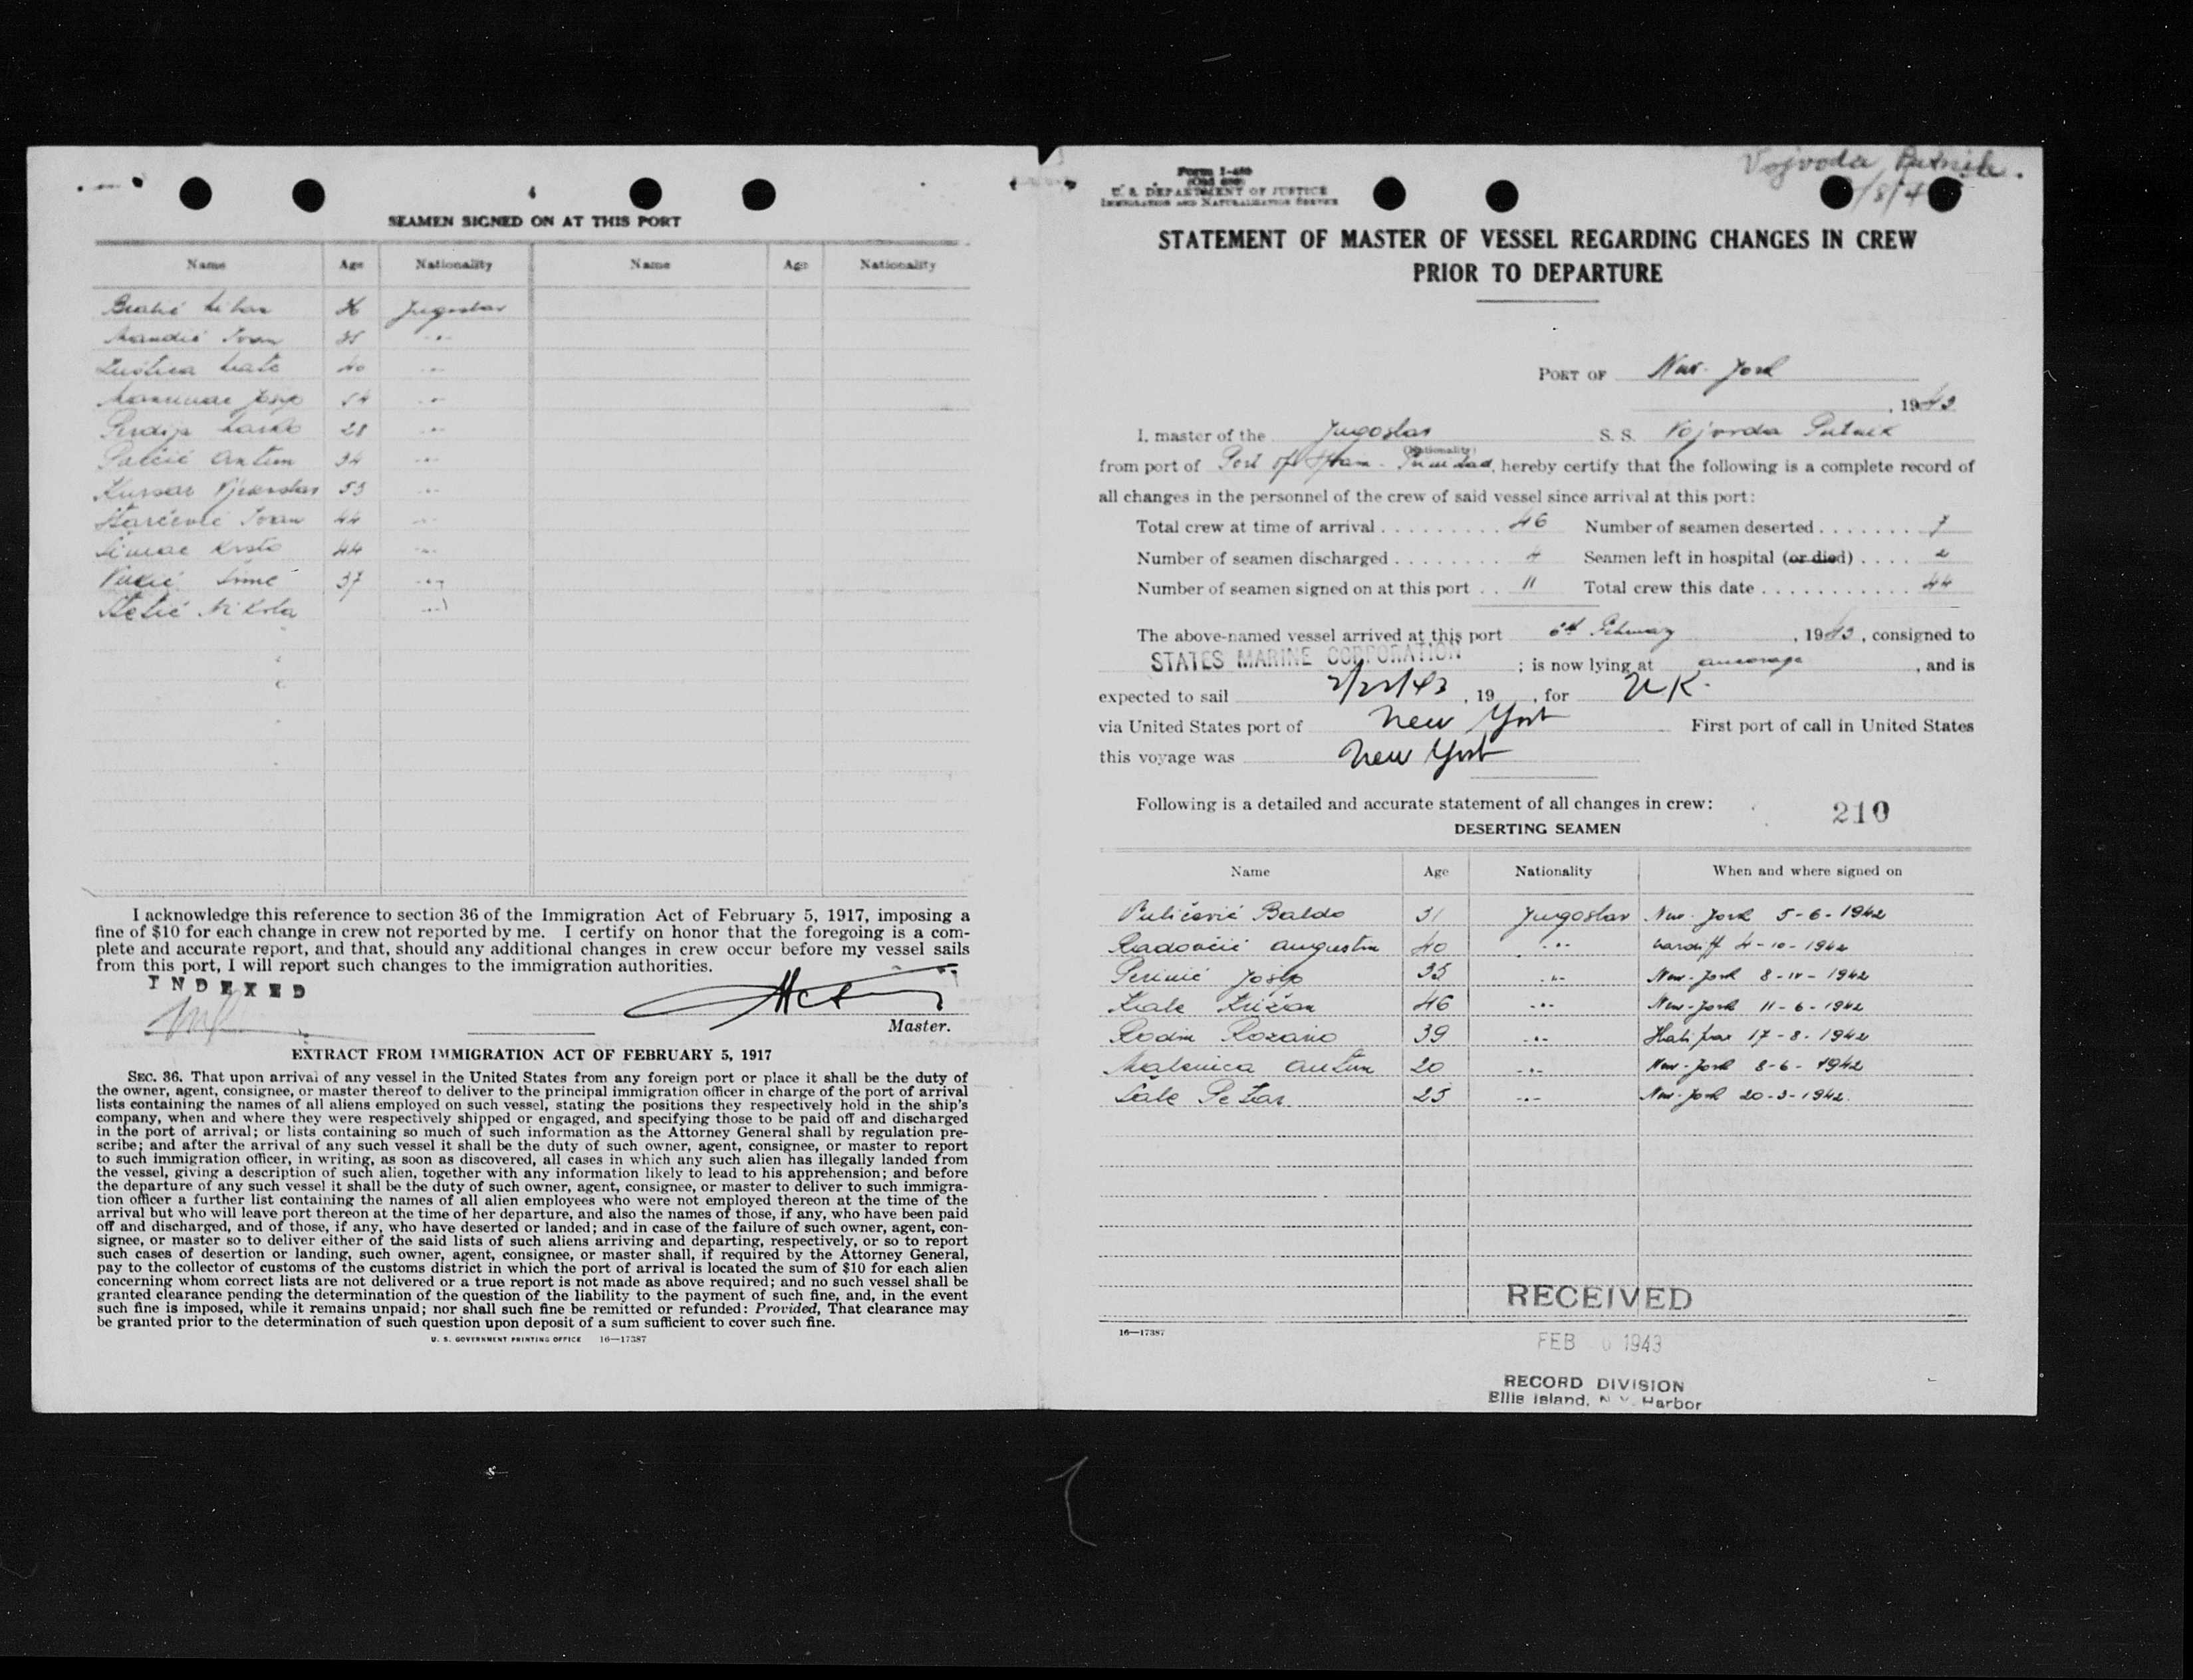 SEAMEN SIGNED ON AT THIS PORT
Name Age Nationality Name Age Nationality
36 Jugoslav
Mandić Ivan 35 -"-
Luštica Mate 40 -"-
Josip 54 -"-
28 -"-
Antun 34 -"-
Vjekoslav 53 -"-
Starčević Ivan 44 -"-
Šimac Krsto 44 -"-
Šime 37 -"-
Nikola -"-
I acknowledge this reference to section 36 of the Immigration Act of February 5, 1917, imposing a
fine of $10 for each change in crew not reported by me. I certify on honor that the foregoing is a com-
plete and accurate report, and that, should any additional changes in crew occur before my vessel sails
from this port, I will report such changes to the immigration authorities.
INDEXED
Master.
EXTRACT FROM IMMIGRATION ACT OF FEBRUARY 5, 1917
SEC. 36. That upon arrival of any vessel in the United States from any foreign port or place it shall be the duty of
the owner, agent, consignee, or master thereof to deliver to the principal immigration officer in charge of the port of arrival
lists containing the names of all aliens employed on such vessel, stating the positions they respectively hold in the ship's
company, when and where they were respectively shipped or engaged, and specifying those to be paid off and discharged
in the port of arrival; or lists containing so much of such information as the Attorney General shall by regulation pre-
scribe; and after the arrival of any such vessel it shall be the duty of such owner, agent, consignee, or master to report
to such immigration officer, in writing, as soon as discovered, all cases in which any such alien has illegally landed from
the vessel, giving a description of such alien, together with any information likely to lead to his apprehension; and before
the departure of any such vessel it shall be the duty of such owner, agent, consignee, or master to deliver to such immigra-
tion officer a further list containing the names of all alien employees who were not employed thereon at the time of the
arrival but who will leave port thereon at the time of her departure, and also the names of those, if any, who have been paid
off and discharged, and of those, if any, who have deserted or landed; and in case of the failure of such owner, agent, con-
signee, or master so to deliver either of the said lists of such aliens arriving and departing, respectively, or so to report
such cases of desertion or landing, such owner, agent, consignee, or master shall, if required by the Attorney General,
pay to the collector of customs of the customs district in which the port of arrival is located the sum of $10 for each alien
concerning whom correct lists are not delivered or a true report is not made as above required; and no such vessel shall be
granted clearance pending the determination of the question of the liability to the payment of such fine, and, in the event
such fine is imposed, while it remains unpaid; nor shall such fine be remitted or refunded: Provided, That clearance may
be granted prior to the determination of such question upon deposit of a sum sufficient to cover such fine.
U. S. GOVERNMENT PRINTING OFFICE 16—17387
Vojvoda Putnik.
Form I-489
U. S. DEPARTMENT OF JUSTICE
IMMIGRATION AND NATURALIZATION SERVICE
STATEMENT OF MASTER OF VESSEL REGARDING CHANGES IN CREW
PRIOR TO DEPARTURE
PORT OF New-York
, 1943
I, master of the Jugoslav S. S. Vojvoda Putnik
(Nationality)
from port of Port of Spain - Trinidad, hereby certify that the following is a complete record of
all changes in the personnel of the crew of said vessel since arrival at this port:
Total crew at time of arrival 46 Number of seamen deserted 7
Number of seamen discharged 4 Seamen left in hospital (or died) 2
Number of seamen signed on at this port 11 Total crew this date 44
The above-named vessel arrived at this port 6th February, 1943, consigned to
STATES MARINE CORPORATION ; is now lying at ancorage, and is
expected to sail 2/22/43, 19 , for U.K.
via United States port of New York First port of call in United States
this voyage was New York
Following is a detailed and accurate statement of all changes in crew:
210
DESERTING SEAMEN
Name Age Nationality When and where signed on
Puličević Baldo 31 Jugoslav New-York 5-6-1942
Radovčić Augustin 40 -"- Cardiff 4-10-1942
Perinić Josip 35 -"- New-York 8-IV-1942
Kale Križan 46 -"- New-York 11-6-1942
Rodin Rozario 39 -"- Halifax 17-8-1942
Malenica Antun 20 -"- New-York 8-6-1942
Šale Petar 25 -"- New-York 20-3-1942
16—17387
RECEIVED
FEB 1943
RECORD DIVISION
Ellis Island, N. Y. Harbor